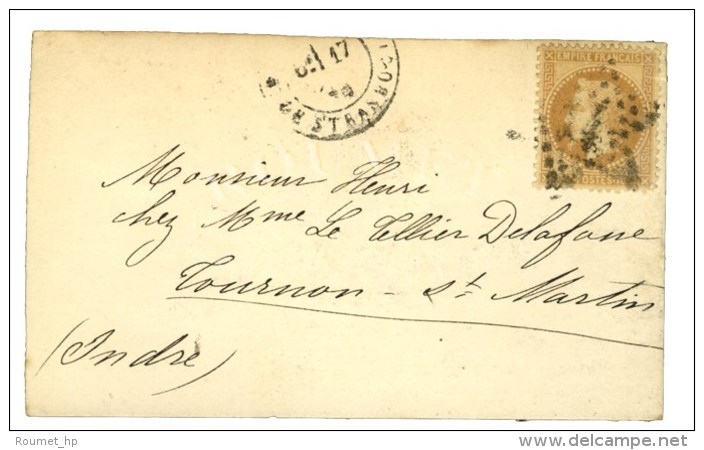 17
DE STRASBOURG
EMPIRE FRANCAIS
POSTES
Monsieur Henri
chez Mme Le Tellier Delafone
Tournon - St. Martin
(Indre)
Roumet_hp
www.delcampe.net